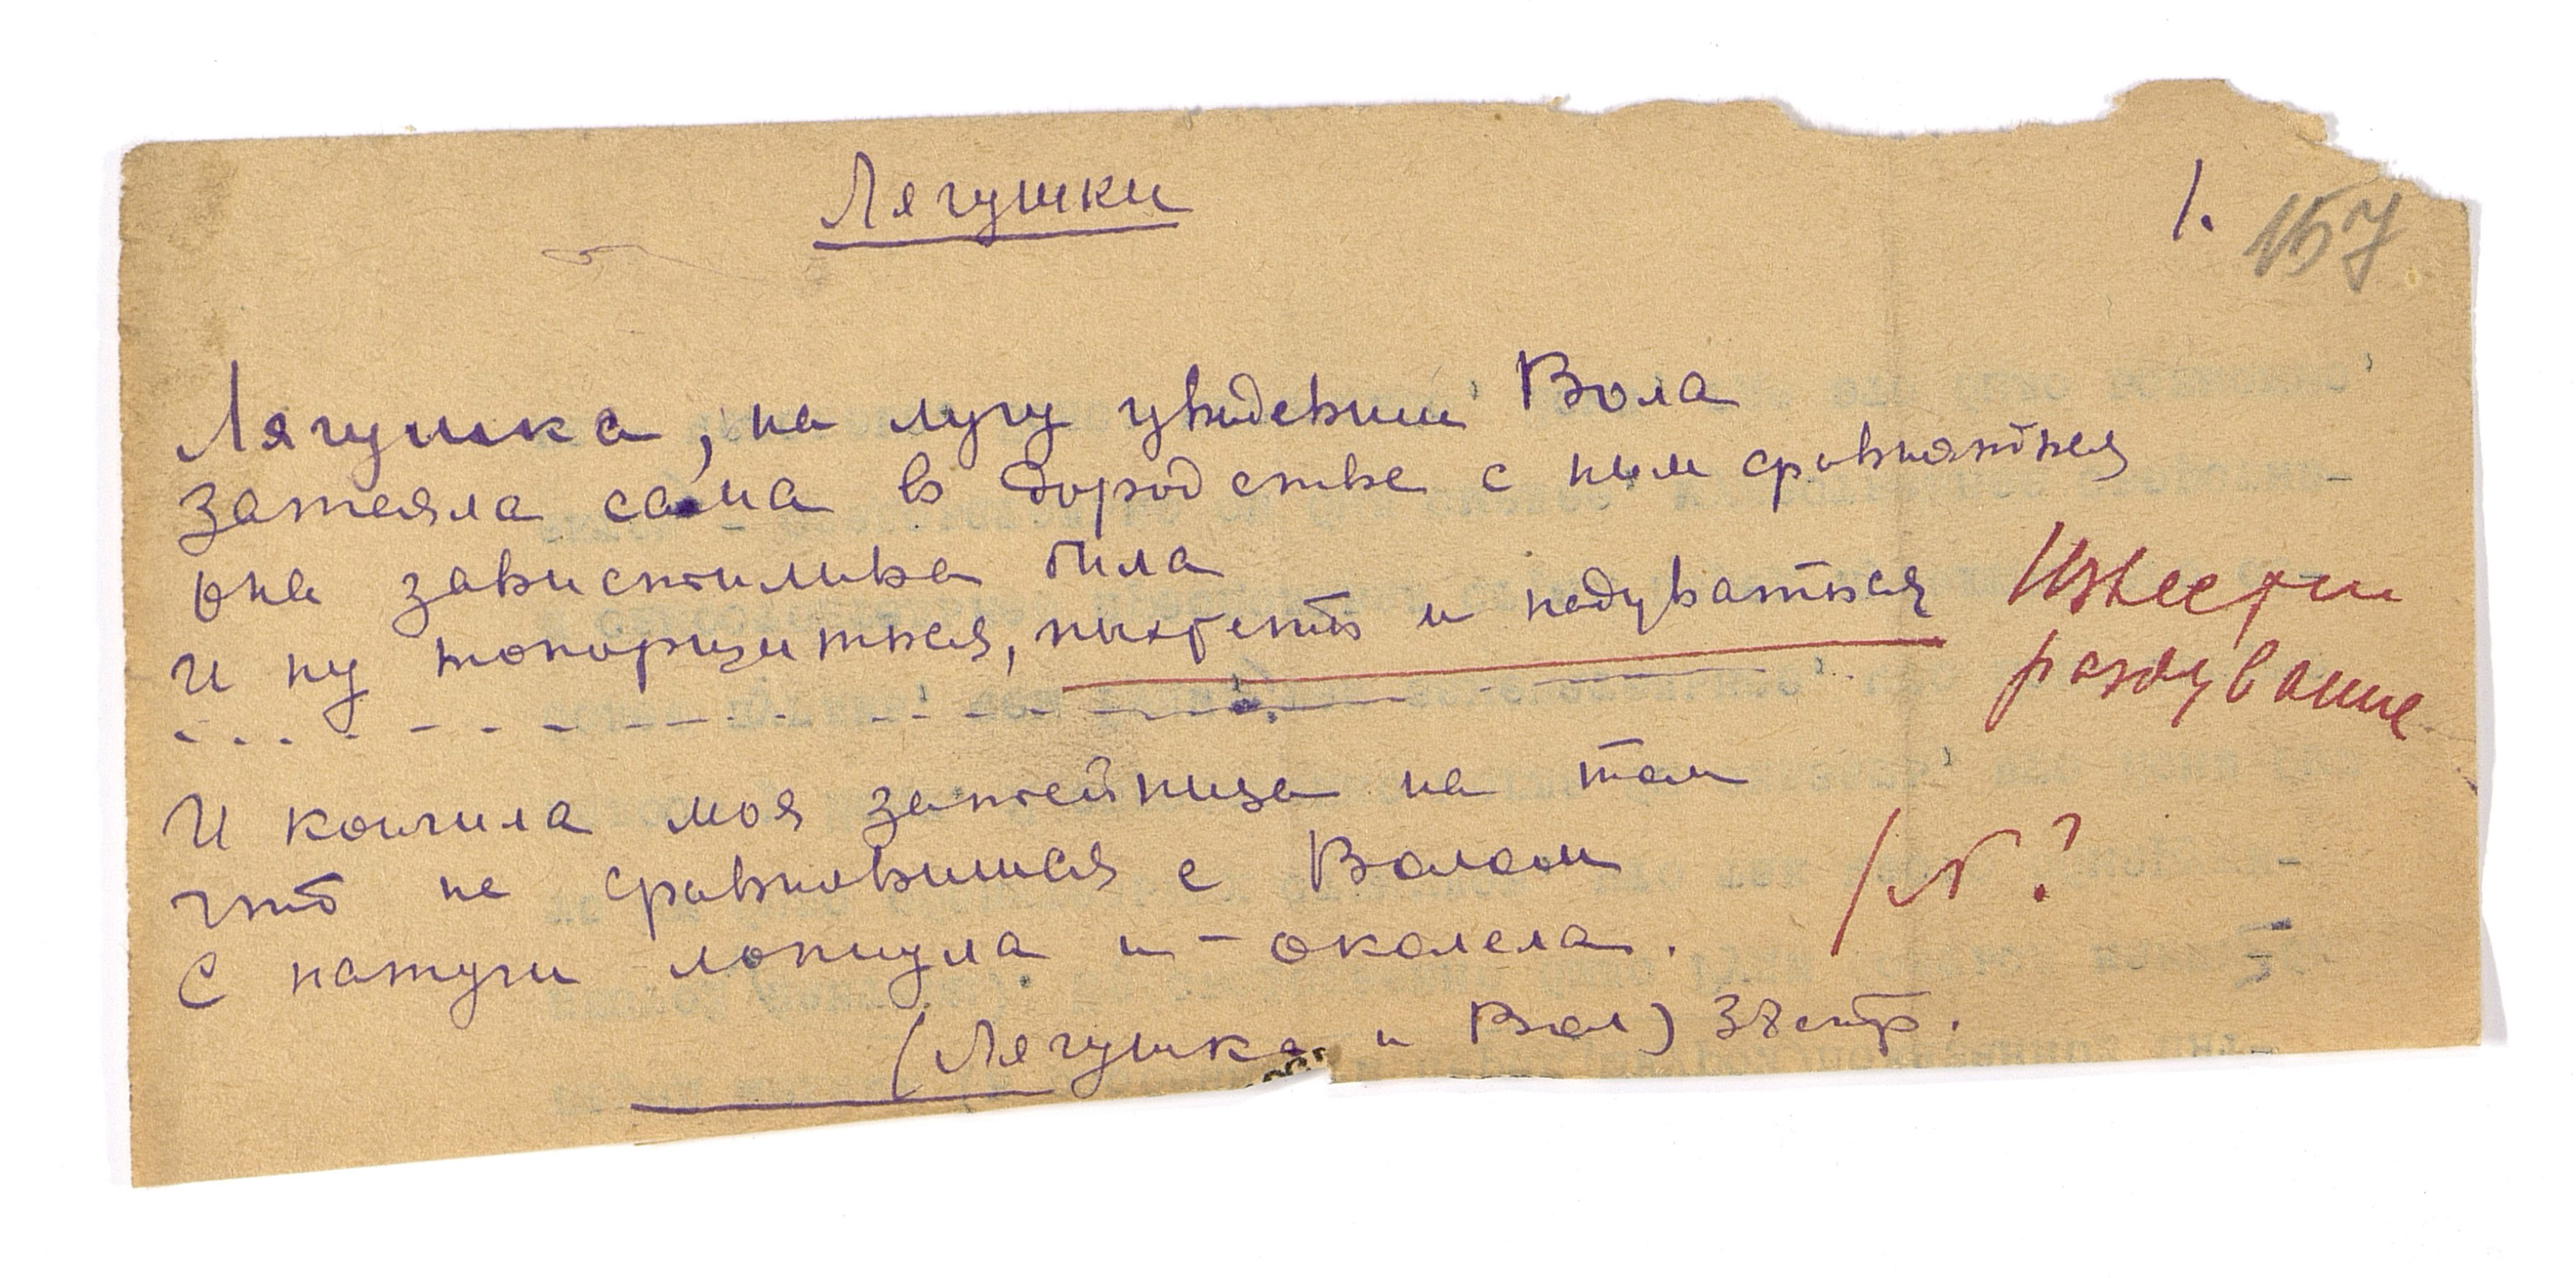 Лягушки
1.
157
Лягушка, на лугу увидевши Вола
Затеяла сама в дородстве с ним сравняться
Она завистлива была
И ну топорщиться, пыхтеть и надуваться
раздувание
И кончила моя затейница на том
Что не сравнявшися с Волом
С натуги лопнула и – околела.
(Лягушка и Вол) 38 стр.